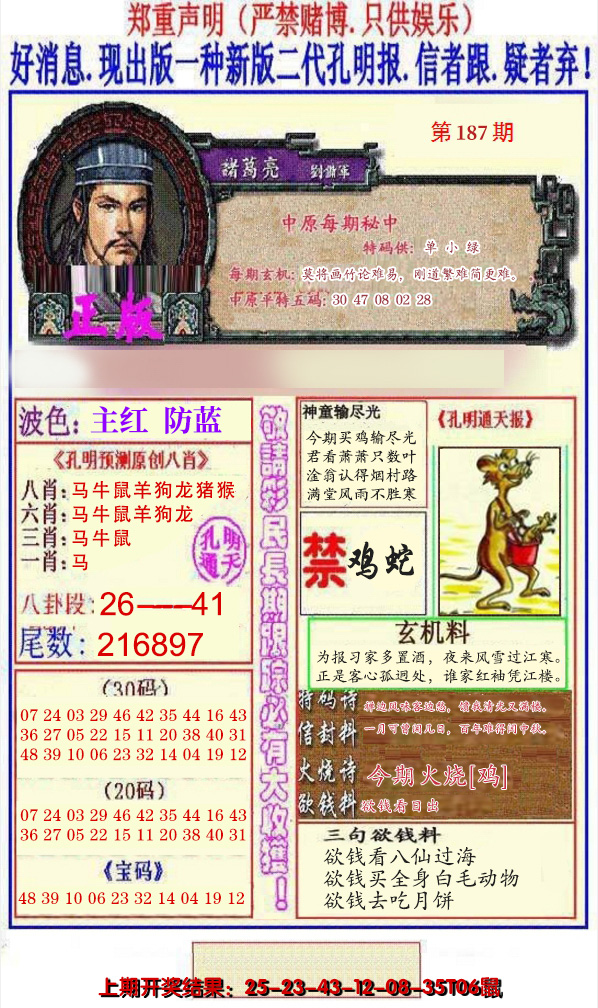 郑重声明（严禁赌博.只供娱乐）
好消息.现出版一种新版二代孔明报.信者跟.疑者弃!
第187期
諸葛亮 劉備軍
中原每期秘中
特码供: 单 小 绿
每期玄机: 莫将画竹论难易，刚道繁难简更难。
中原平特五码: 30 47 08 02 28
正版
波色: 主红 防蓝
《孔明预测原创八肖》
八肖: 马牛鼠羊狗龙猪猴
六肖: 马牛鼠羊狗龙
三肖: 马牛鼠
一肖: 马
孔明
通天
八卦段: 26——41
尾数: 216897
（30码）
07 24 03 29 46 42 35 44 16 43
36 27 05 22 15 11 20 38 40 31
48 39 10 06 23 32 14 04 19 12
（20码）
07 24 03 29 46 42 35 44 16 43
36 27 05 22 15 11 20 38 40 31
《宝码》
48 39 10 06 23 32 14 04 19 12
敬請彩民長期跟踪必有大收獲！
神童输尽光
今期买鸡输尽光
君看萧萧只数叶
淦翁认得烟村路
满堂风雨不胜寒
《孔明通天报》
禁 鸡蛇
玄机料
为报习家多置酒，夜来风雪过江寒。
正是客心孤迥处，谁家红袖凭江楼。
特码诗
信封料
一月可曾闲几日，百年难得闲中秋。
火烧诗 今期火烧[鸡]
欲钱料 欲钱看日出
三句欲钱料
欲钱看八仙过海
欲钱买全身白毛动物
欲钱去吃月饼
上期开奖结果：25-23-43-12-08-35T06鼠